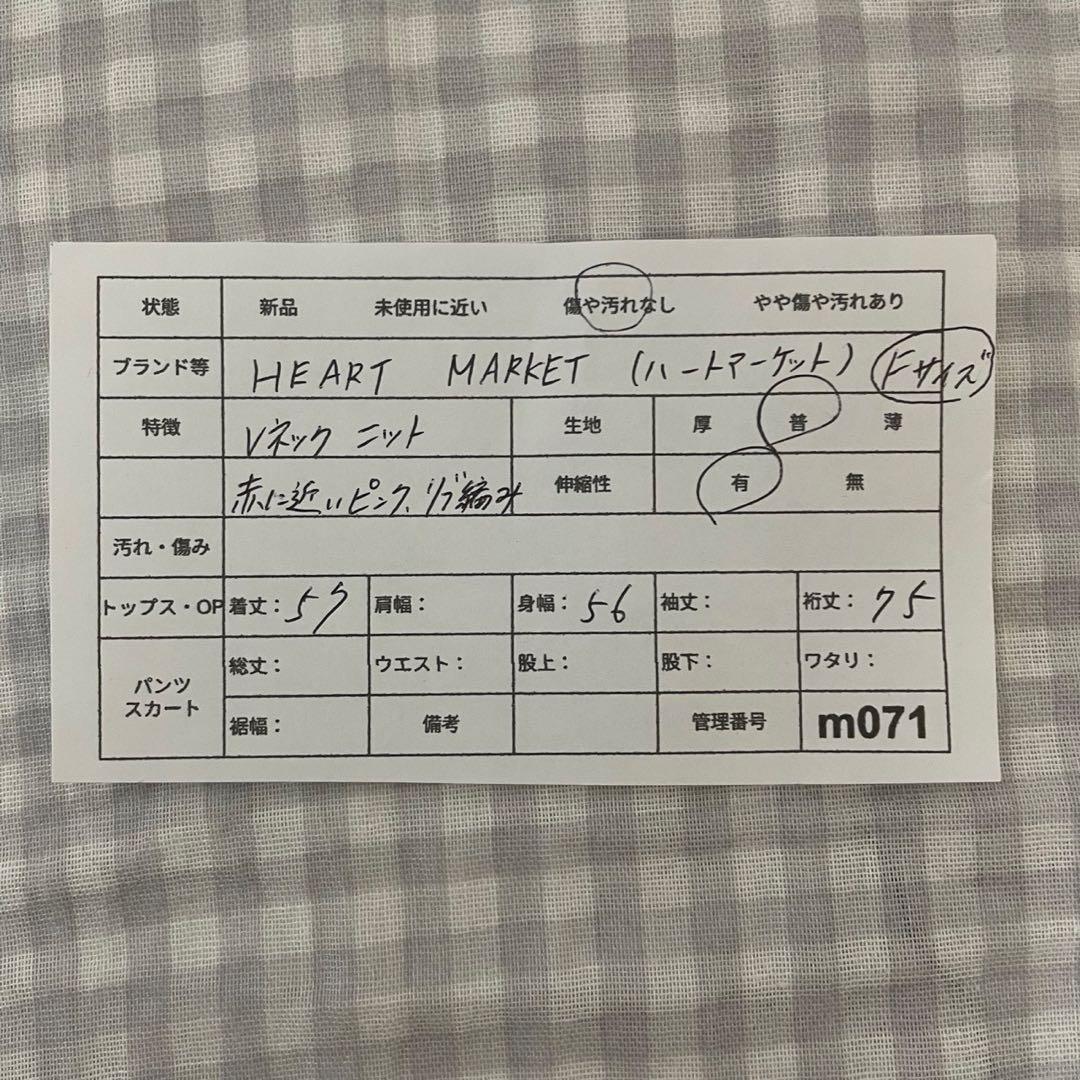 状態 新品 未使用に近い 傷や汚れなし やや傷や汚れあり
ブランド等 HEART MARKET (ハートマーケット) Fサイズ
特徴 Vネック ニット 生地 厚 普 薄
赤に近いピンク、リブ編み 伸縮性 有 無
汚れ・傷み
トップス・OP 着丈: 57 肩幅: 身幅: 56 袖丈: 裄丈: 75
パンツ スカート 総丈: ウエスト: 股上: 股下: ワタリ:
裾幅: 備考 管理番号 m071